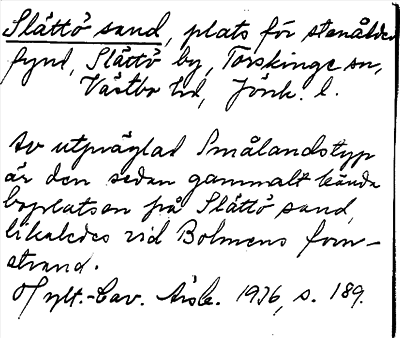 Slättö sand, plats för stenålders
fynd, Slättö by, Torskinge sn,
Västbo hd, Jönk. l.
Av utpräglad Smålandstyp
är den sedan gammalt kända
boplatsen på Slättö sand,
likaledes vid Bolmens forn-
strand.
Hylt.-Cav. Årsb. 1936, s. 189.